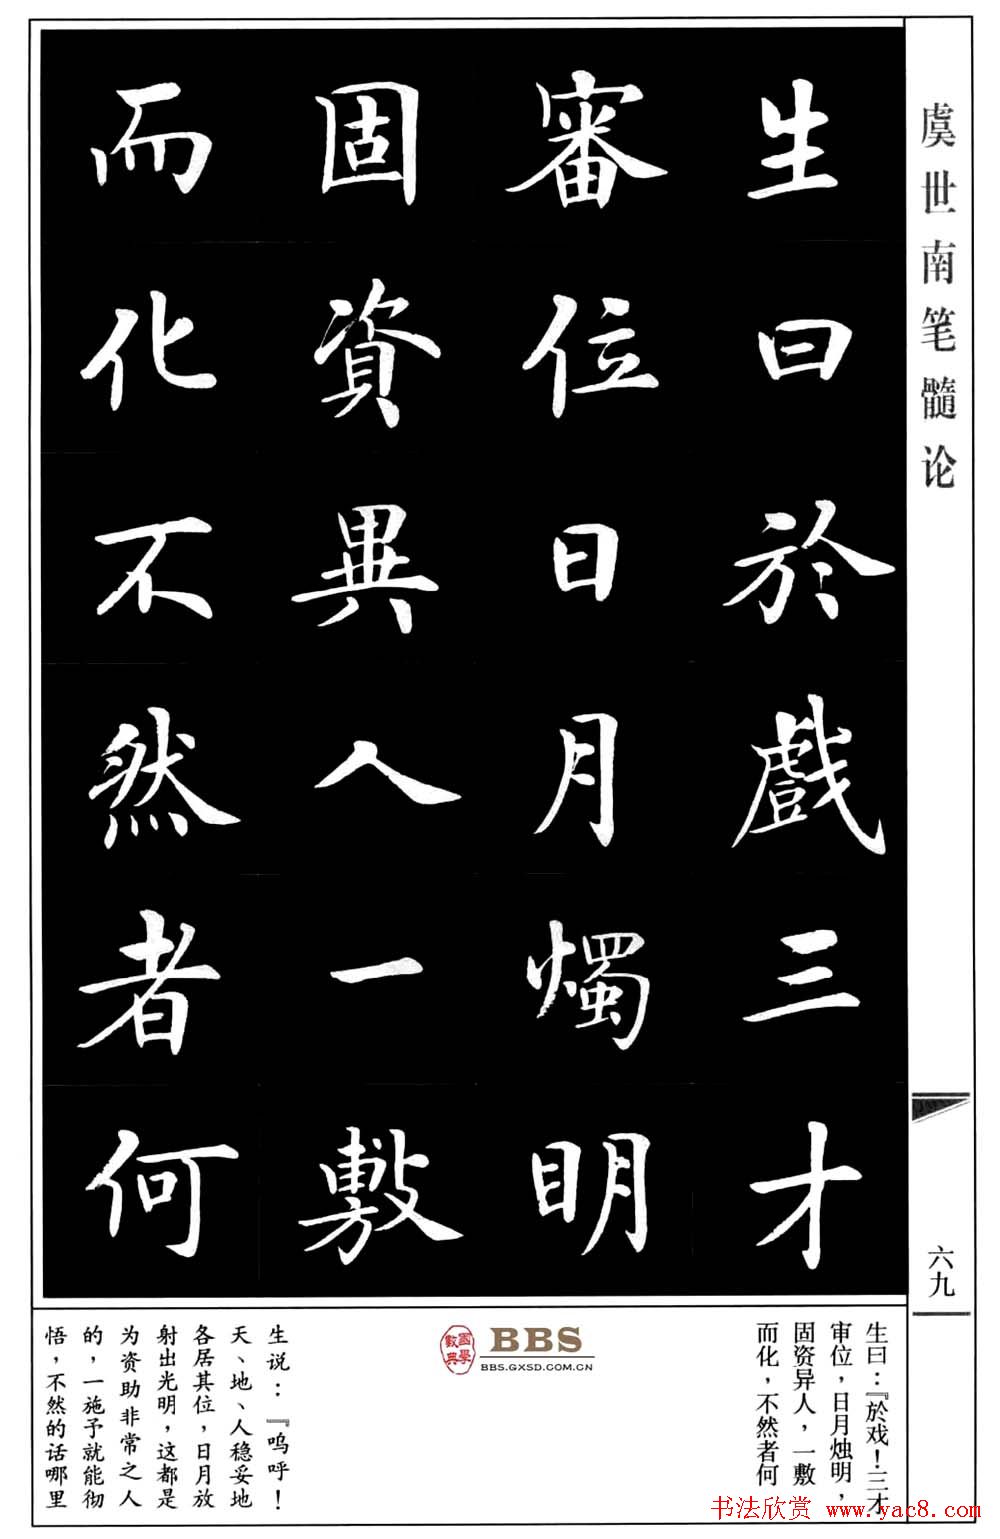 虞世南笔髓论
生曰於戲三才
審位日月燭明
固資異人一敷
而化不然者何
六九
生曰：『於戏！三才
审位，日月烛明，
固资异人，一敷
而化，不然者何
國學數典
BBS
BBS.GXSD.COM.CN
生说：『呜呼！
天、地、人稳妥地
各居其位，日月放
射出光明，这都是
为资助非常之人
的，一施予就能彻
悟，不然的话哪里
书法欣赏 www.yac8.com